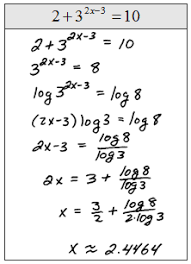 2 + 3^{2x-3} = 10
2 + 3^{2x-3} = 10
3^{2x-3} = 8
log 3^{2x-3} = log 8
(2x-3) log 3 = log 8
2x-3 = \frac{log 8}{log 3}
2x = 3 + \frac{log 8}{log 3}
x = \frac{3}{2} + \frac{log 8}{2·log 3}
x ≈ 2.4464